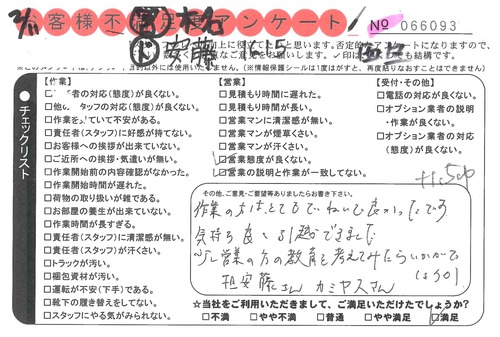 お客様不満足度アンケート
№ 066093
【作業】
の対応(態度)が良くない。
スタッフの対応(態度)が良くない。
□作業をしていて不安がある。
□責任者(スタッフ)に好感が持てない。
□お客様への挨拶が出来ていない。
□ご近所への挨拶・気遣いが無い。
□作業開始前の内容確認がなかった。
□作業開始時間が遅れた。
□荷物の取り扱いが雑である。
□お部屋の養生が出来ていない。
□作業時間が長すぎる。
□責任者(スタッフ)に清潔感が無い。
□責任者(スタッフ)が汗くさい。
□トラックが汚い。
□梱包資材が汚い。
□運転が不安(下手)である。
□靴下の履き替えをしてない。
□スタッフにやる気がみられない。
【営業】
□見積もり時間に遅れた。
□見積もり時間が長い。
□営業マンに清潔感が無い。
□営業マンが煙草くさい。
□営業マンが汗くさい。
□営業態度が良くない。
□営業の説明と作業が一致してない。
【受付・その他】
□電話の対応が良くない。
□オプション業者の説明
・作業が良くない。
□オプション業者の対応
(態度)が良くない。
チェックリスト
その他、ご意見・ご要望等ありましたらお書き下さい。
作業の方はとてもていねいで良かったです
気持ち良く引越できました
少し営業の方の教育を考えてみたらいかがで
しょうか
担安藤さん カミヤスさん
☆当社をご利用いただきまして、ご満足いただけたでしょうか?
□不満 □やや不満 □普通 □やや満足 □満足